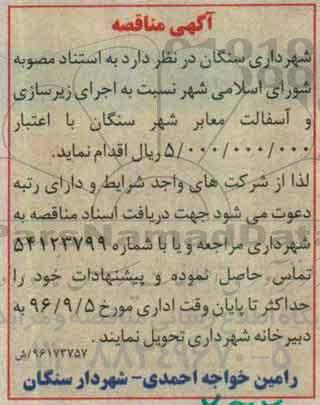 آگهی مناقصه
شهرداری سنگان در نظر دارد به استناد مصوبه
شورای اسلامی شهر نسبت به اجرای زیرسازی
و آسفالت معابر شهر سنگان با اعتبار
۵/۰۰۰/۰۰۰/۰۰۰ ریال اقدام نماید.
لذا از شرکت های واجد شرایط و دارای رتبه
دعوت می شود جهت دریافت اسناد مناقصه به
شهرداری مراجعه و یا با شماره ۵۴۱۲۳۷۹۹
تماس حاصل نموده و پیشنهادات خود را
حداکثر تا پایان وقت اداری مورخ ۹۶/۹/۵ به
دبیرخانه شهرداری تحویل نمایند.
۹۶۱۷۳۷۵۷/ش
رامین خواجه احمدی- شهردار سنگان